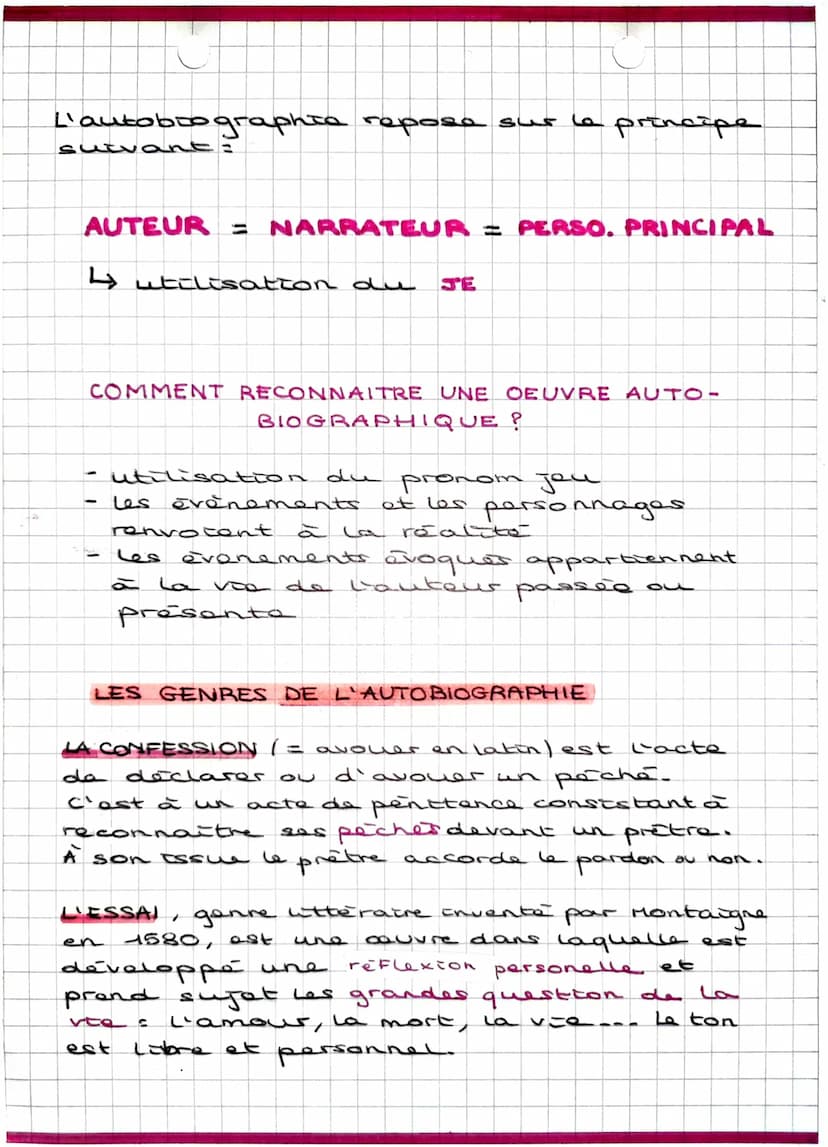 L'autobiographie repose sur le principe
suivant :
AUTEUR = NARRATEUR = PERSO. PRINCIPAL
↳ utilisation du JE
COMMENT RECONNAITRE UNE OEUVRE AUTO-
BIOGRAPHIQUE ?
- utilisation du pronom jeu
- les évènements et les personnages
renvoient à la réalité
- les évenements évoqués appartiennent
à la vie de l'auteur passée ou
présente
LES GENRES DE L'AUTOBIOGRAPHIE
LA CONFESSION (= avouer en latin) est l'acte
de déclarer ou d'avouer un péché.
C'est à un acte de pénitence consistant à
reconnaître ses péchés devant un prêtre.
À son issue le prêtre accorde le pardon ou non.
L'ESSAI, genre littéraire inventé par Montaigne
en 1580, est une œuvre dans laquelle est
développé une réflexion personelle et
prend sujet les grandes question de la
vie : l'amour, la mort, la vie... Le ton
est libre et personnel.